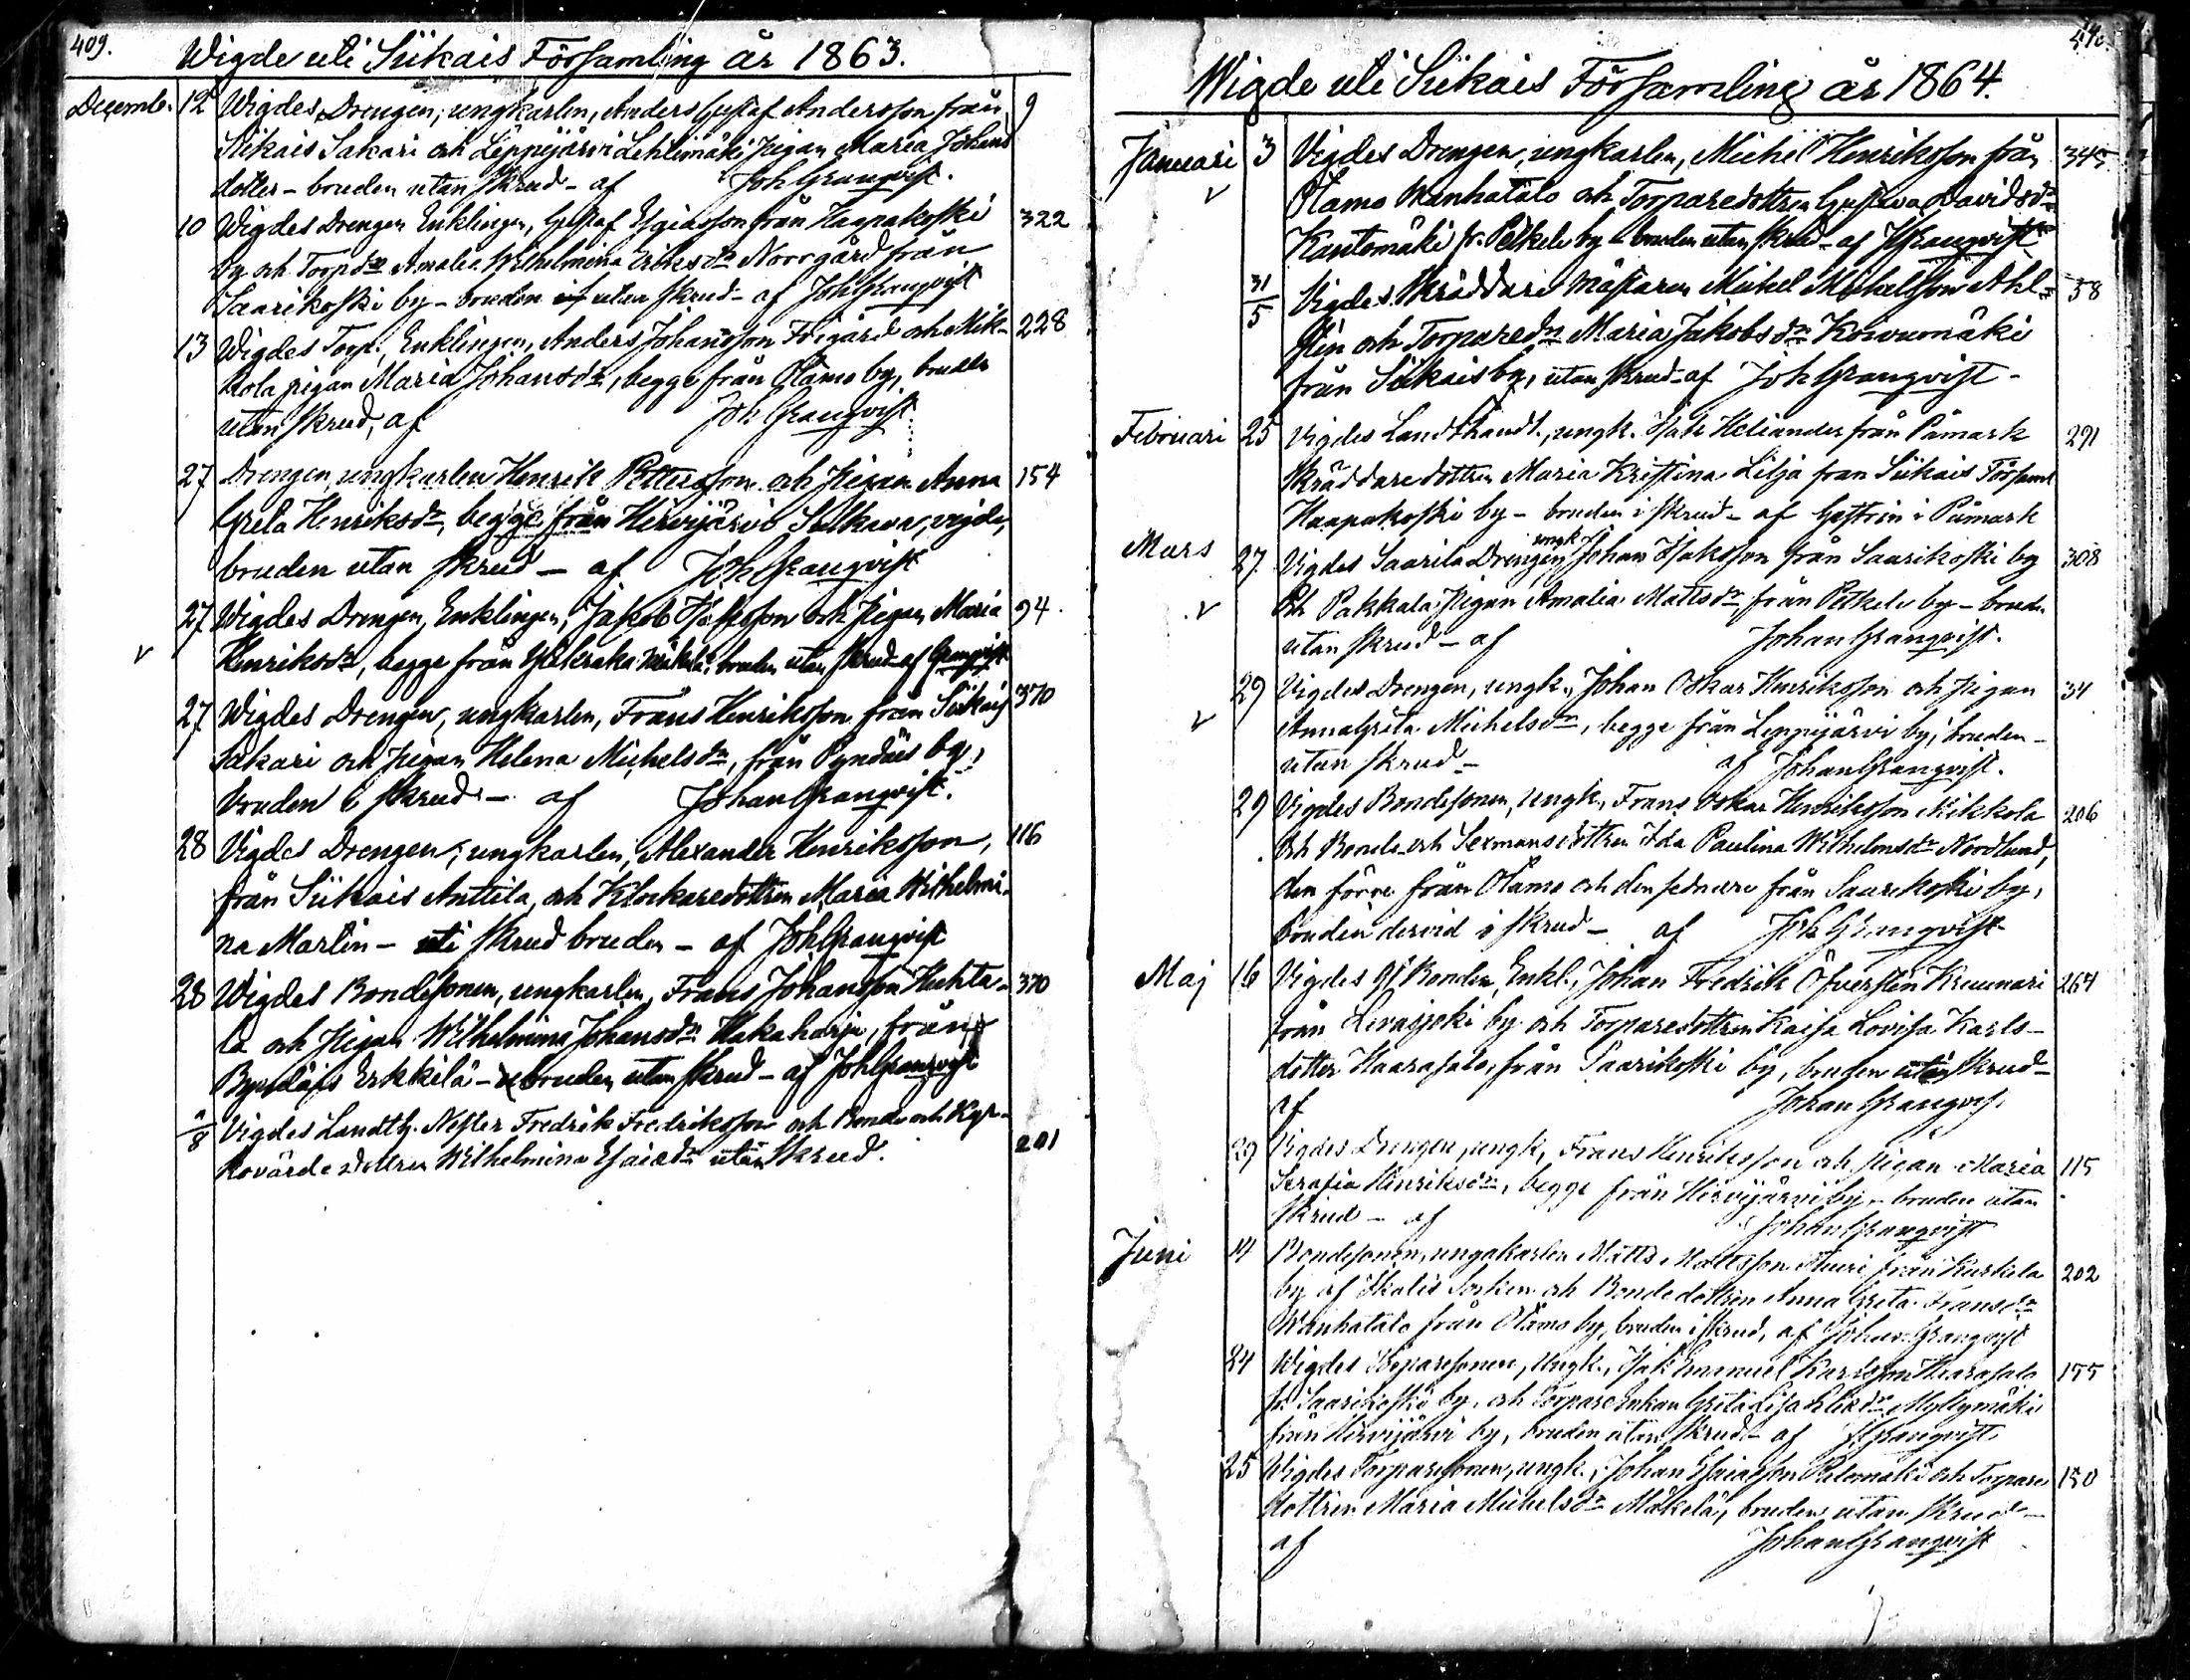 409.
Wigde uti Siikais Församling år 1863.
Decemb. 12 Wigdes Drengen, ungkarlen, Anders Gustaf Andersson från 9
Siikais Sakari och Leppijärvi Lehtimäki pigan Maria Johans
dotter - bruden utan skrud - af Joh Granqvist.
10 Wigdes Drengen Enklingen, Gustaf Esaiasson från Haapakoski 322
by och Torpdn Amalia Wilhelmina Eriksdn Norrgård från
Saarikoski by - bruden utan skrud - af Joh Granqvist
13 Wigdes Torp., Enklingen, Anders Johansson Frigård och Mik- 228
kola pigan Maria Johansdr, begge från Otamo by, bruden
utan skrud, af Joh Granqvist
27 Drengen, ungkarlen Henrik Pettersson och pigan Anna 154
Greta Henriksdr, begge från Hirvijärvi Sulkava, vigde,
bruden utan skrud - af Joh Granqvist
27 Wigdes Drengen, Enklingen, Jakob Isaksson och pigan Maria 94.
v Henriksdr, begge från Mäkelä, bruden utan skrud af Granqvist
27 Wigdes Drengen, ungkarlen, Frans Henriksson från Siikais 370
Sakari och pigan Helena Michelsdn, från Pyndäis by,
bruden i skrud - af Johan Granqvist.
28 Vigdes Drengen, ungkarlen, Alexander Henriksson, 116
från Siikais Anttila, och Klockaredottren Maria Wilhelmi-
na Martin - uti skrud bruden - af Joh Granqvist
28 Wigdes Bondesonen, ungkarlen, Frans Johansson Huhta- 370
la och pigan Wilhelmina Johansdn Hakaharju, från
Pyndäis Erkkilä - bruden utan skrud - af Joh Granqvist
8 Vigdes Landtb. Nestor Fredrik Fredriksson och Bonde och Kyr-
kovärdesdottren Wilhelmina Esaiædr utan skrud. 201
410.
Wigde uti Siikais Församling år 1864.
Januari 3 Vigdes Drengen, ungkarlen, Michel Henriksson från 345
v Otamo Wanhatalo och Torparedottren Gustava Davidsdr
Kautomäki fr. Petkele by - bruden utan skrud - af J Granqvist
31/5 Vigdes Skräddare mästaren Michel Michelsson Ahl- 58
sten och Torparedn Maria Jakobsdn Koivumäki
från Siikais by, utan skrud - af Joh Granqvist -
Februari 25 Vigdes Landthandl., ungk. Isak Heliander från Påmark 291
Skräddaredottren Maria Kristina Lilja från Siikais Församl
Haapakoski by - bruden i skrud - af Gestrin i Påmark
Mars 27 Vigdes Saarila Drengen ungk. Johan Isaksson från Saarikoski by 308
v och Pakkala pigan Amalia Mattsdr från Petkele by - bruden
utan skrud - af Johan Granqvist.
29 Vigdes Drengen, ungk., Johan Oskar Henriksson och pigan 34
v Anna Greta Michelsdn, begge från Leppijärvi by, bruden -
utan skrud - af Johan Granqvist.
29 Vigdes Bondesonen, Ungk., Frans Oskar Henriksson Mikkola 206
och Bonde och Sexmansdottren Ida Paulina Wilhelmsdr Nordlund,
den förre från Otamo och den sednare från Saarikoski by,
bruden dervid i skrud - af Joh Granqvist
Maj 16 Vigdes Bonden, Enkl., Johan Fredrik Öfversten Kreunari 264
från Levasjoki by och Torparedottren Kaisa Lovisa Karls-
dotter Haarasalo, från Saarikoski by, bruden utan skrud -
af Johan Granqvist
29 Vigdes Drengen, ungk., Frans Henriksson och pigan Maria 115
Serafia Henriksdn, begge från Hirvijärvi by, - bruden utan
skrud - af Johan Granqvist
Juni 14 Bondesonen, ungakarlen Matts Mattsson från Kuskela 202
by af Ikalis Socken och Bondedottren Anna Greta Fransdr
Wanhatalo från Otamo by, bruden i skrud, af Johan Granqvist
24 Wigdes Torparesonen, Ungk., Isak Emanuel Karlsson Haarasalo 155
fr. Saarikoski by, och Torpare Enkan Greta Lisa Eliædr Myllymäki
från Hirvijärvi by, bruden utan skrud - af J Granqvist
25 Wigdes Torparesonen, ungk., Johan Esaiasson Palomäki och Torpare 150
dottren Maria Michelsdr Mäkelä, bruden utan skrud -
af Johan Granqvist